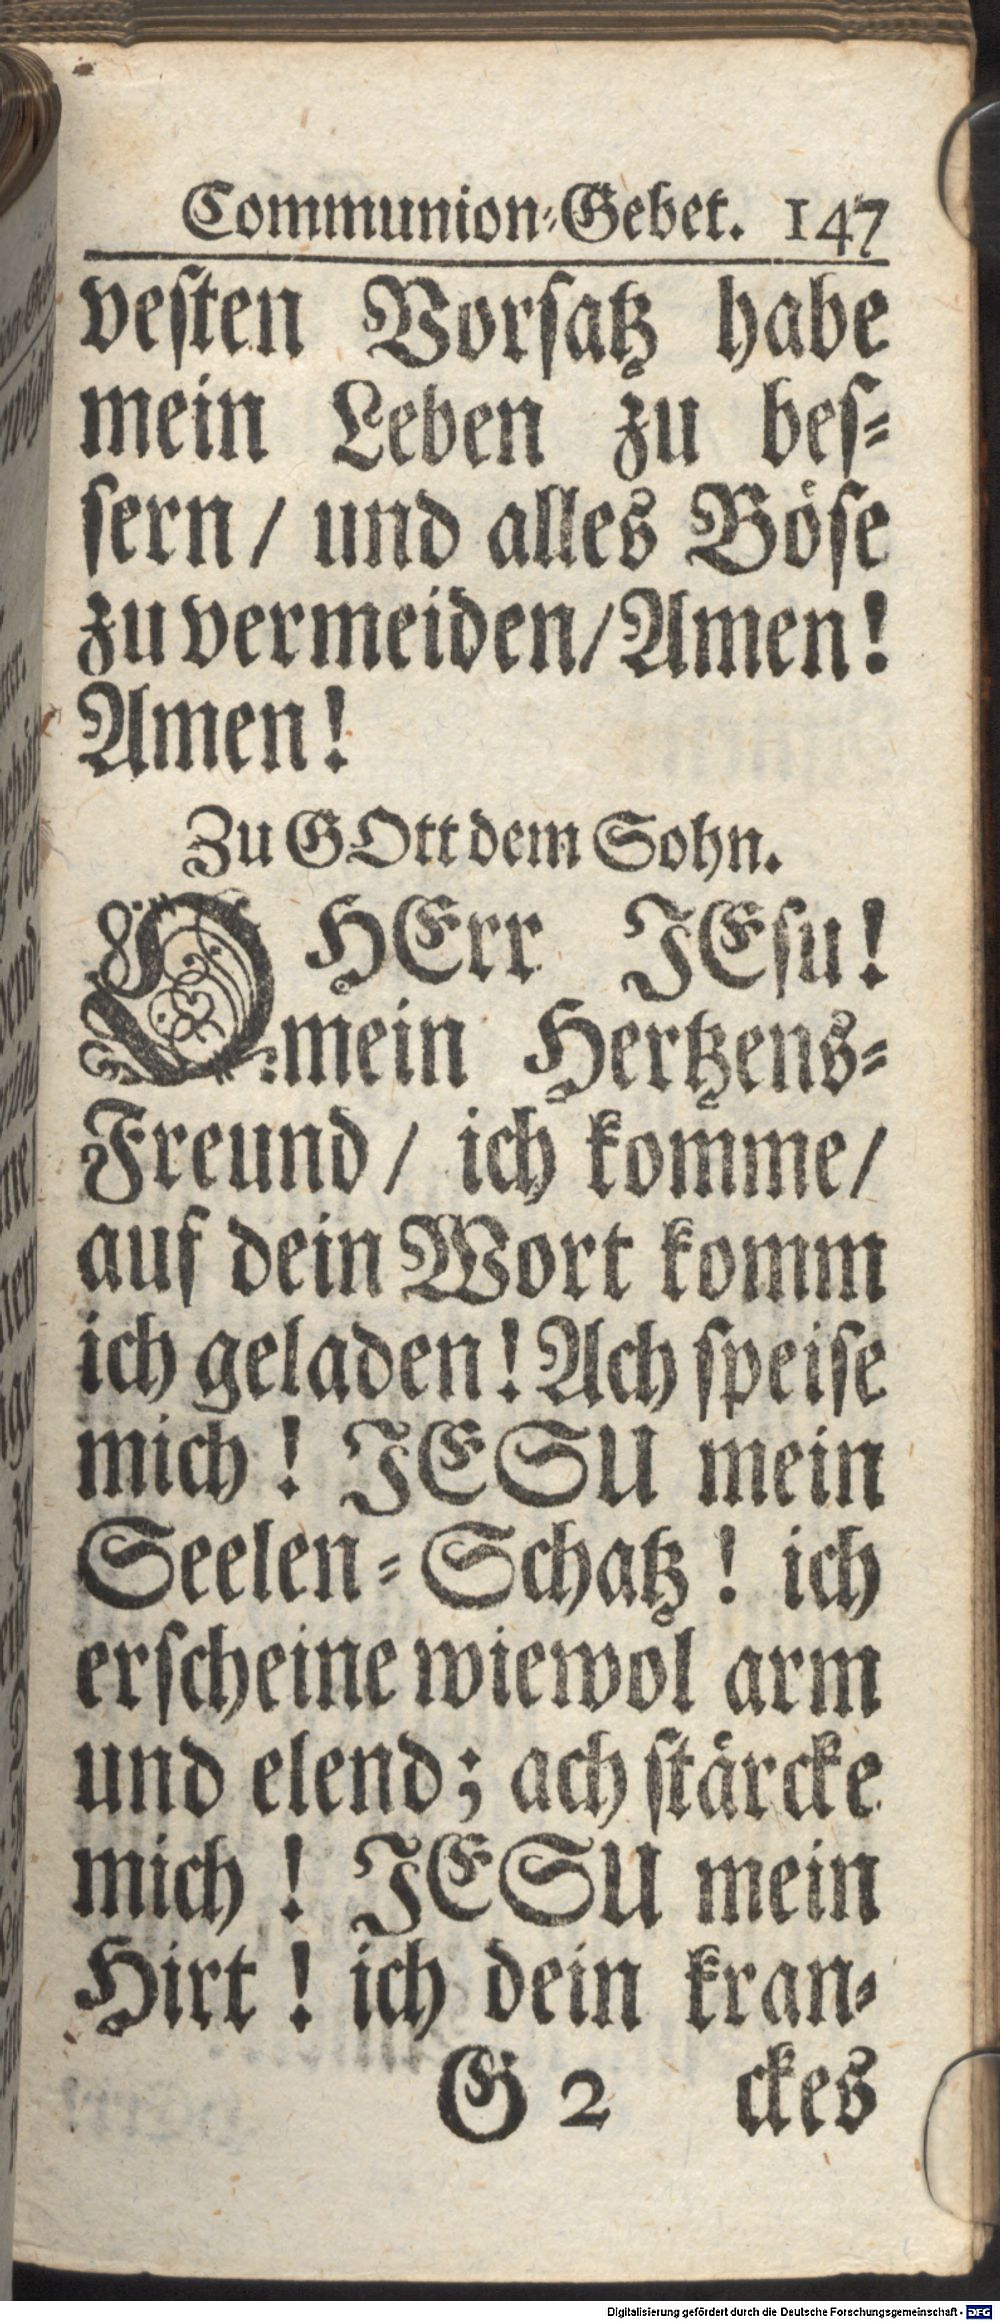 Communion-Gebet. 147
vesten Vorsatz habe
mein Leben zu bes-
sern / und alles Böse
zu vermeiden / Amen!
Amen!
Zu GOtt dem Sohn.
O HErr JEsu!
mein Hertzens-
Freund / ich komme /
auf dein Wort komm
ich geladen! Ach speise
mich! JESU mein
Seelen-Schatz! ich
erscheine wiewol arm
und elend; ach stärcke
mich! JESU mein
Hirt! ich dein kran-
G 2 ckes
Digitalisierung gefördert durch die Deutsche Forschungsgemeinschaft - DFG